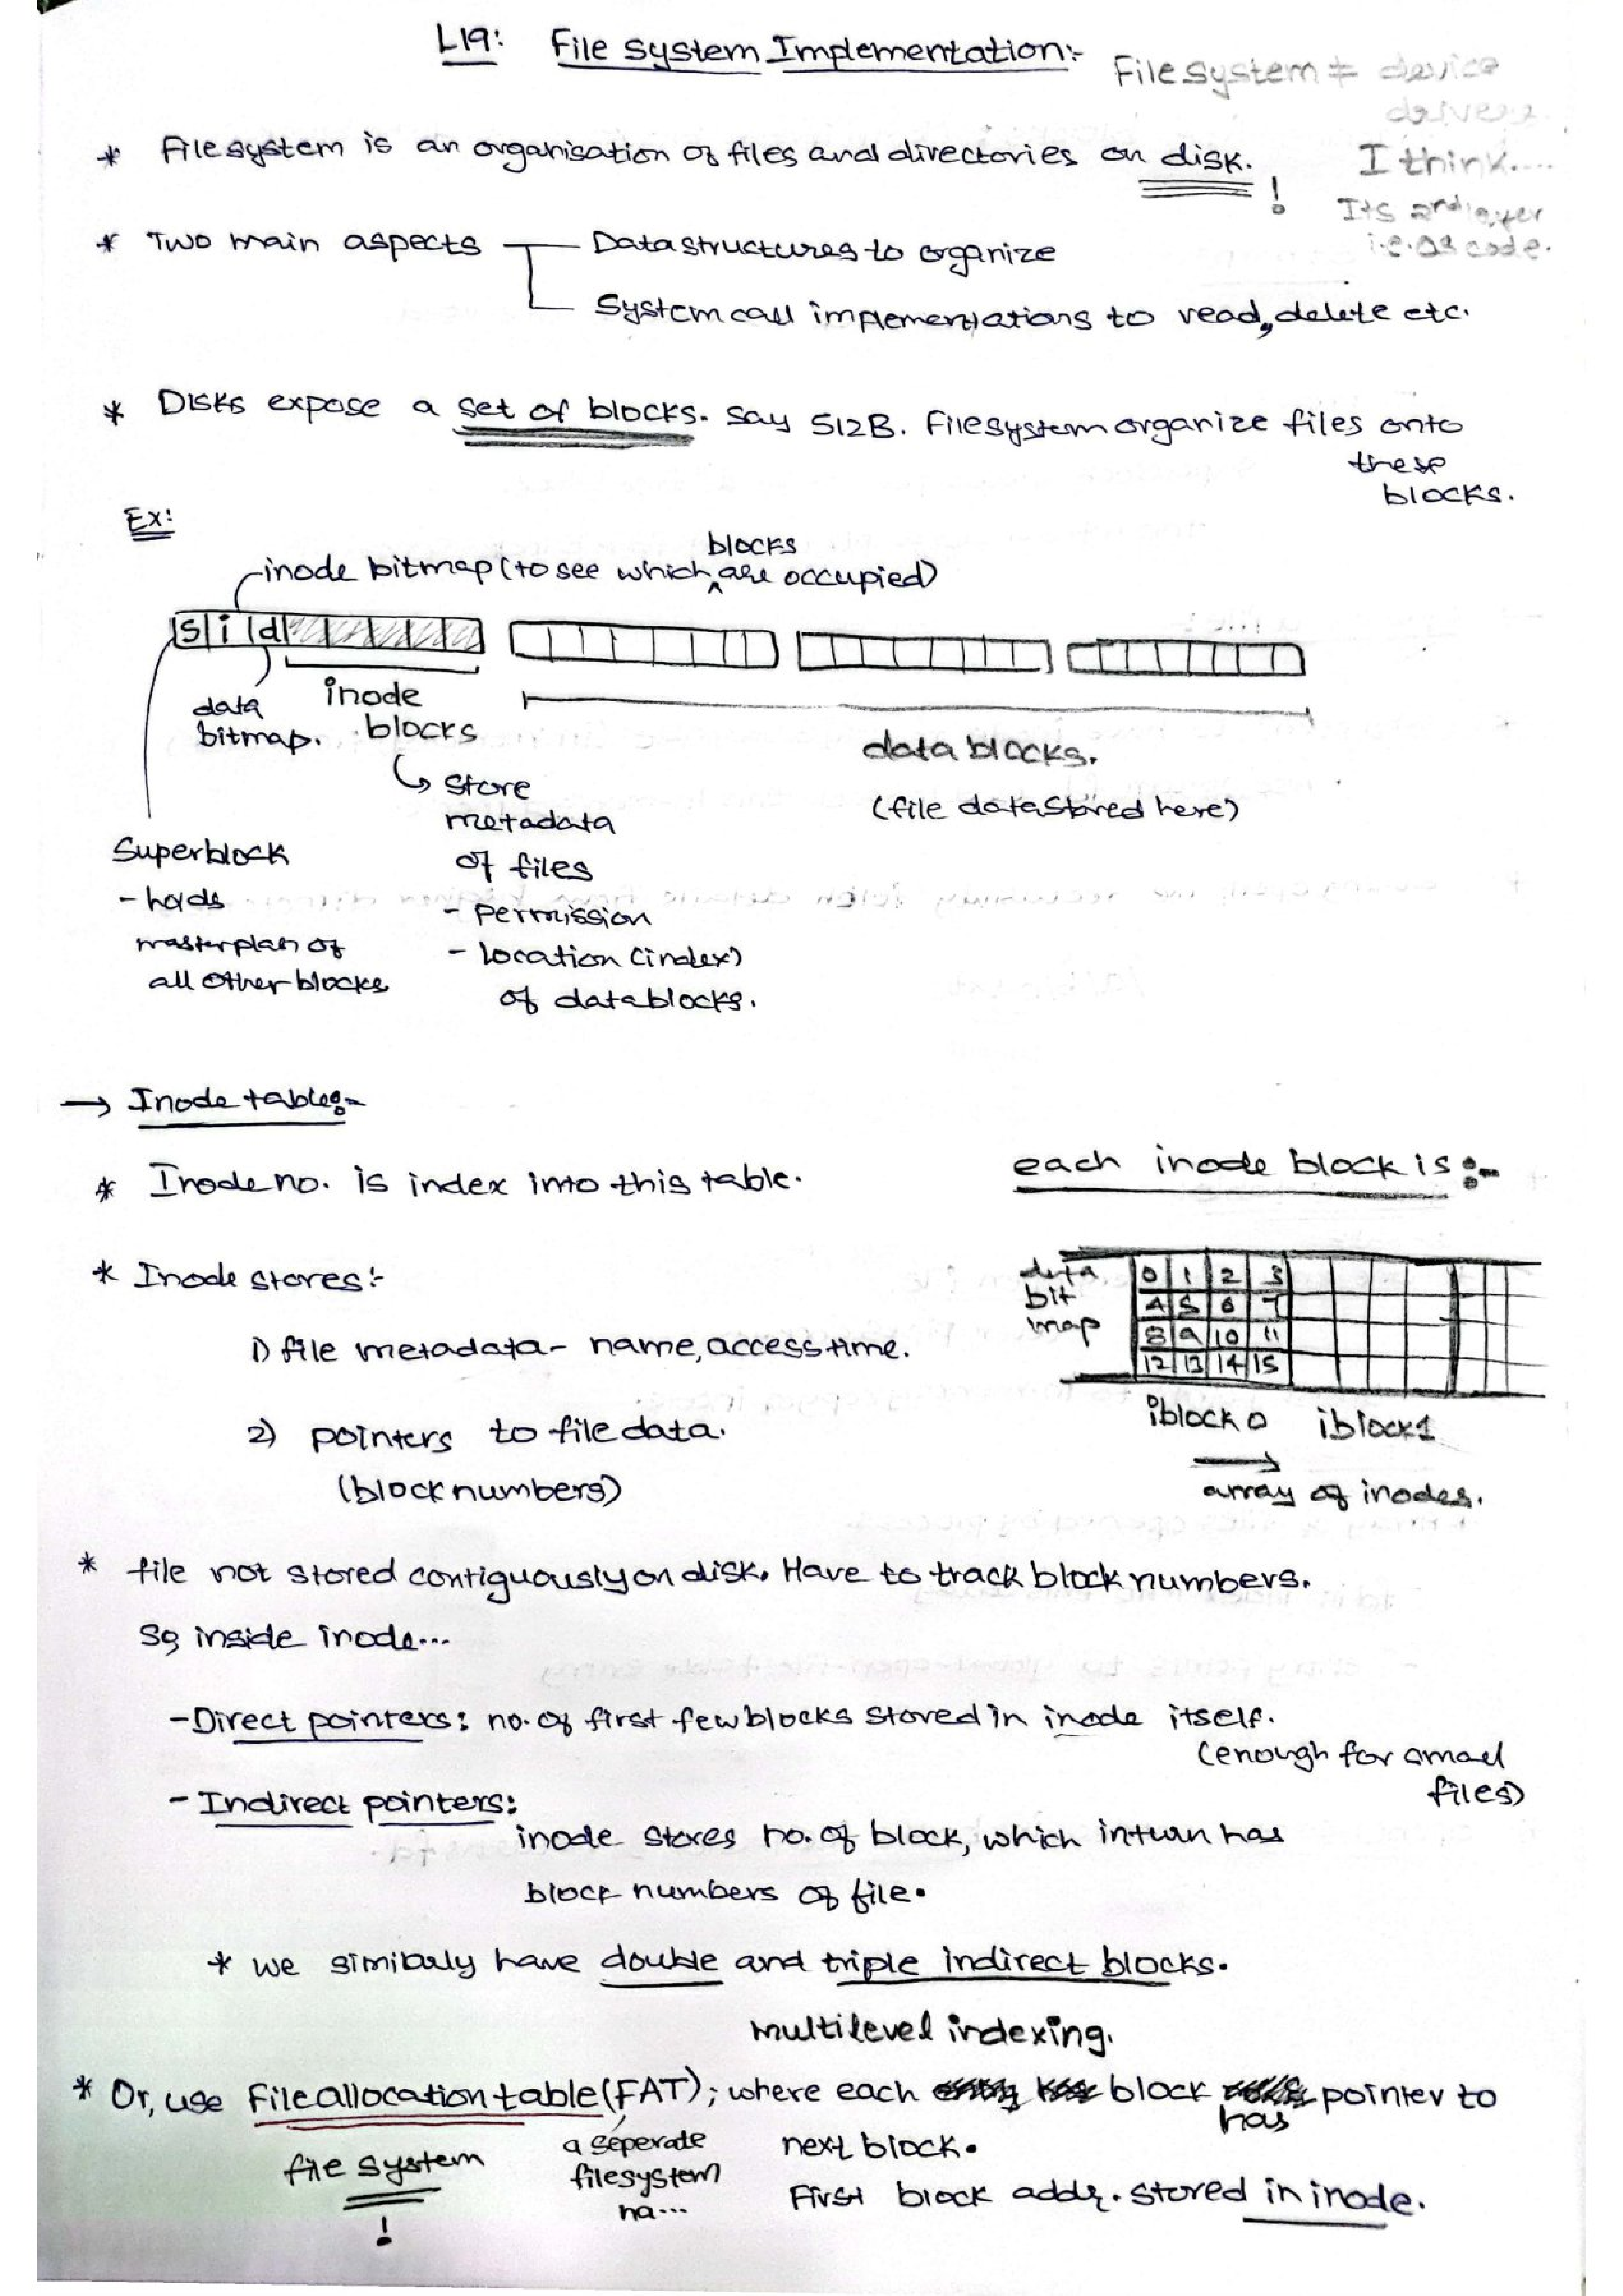 L19: File system Implementation:-
File system ≠ device
driver.
I think....
Its 2nd layer
i.e. OS code.
* File system is an organisation of files and directories on disk. !
* Two main aspects
Data structures to organize
System call implementations to read, delete etc.
* Disks expose a set of blocks. say 512B. Filesystem organize files onto
these
blocks.
Ex:
blocks
inode bitmap (to see which ^ are occupied)
S i d
data
bitmap.
inode
blocks
data blocks.
(file data stored here)
↳ store
metadata
of files
- permission
- location (index)
of data blocks.
Superblock
- holds
masterplan of
all other blocks
→ Inode table:-
* Inode no. is index into this table.
* Inode stores:-
1) file metadata - name, access time.
2) pointers to file data.
(block numbers)
each inode block is :-
data
bit
map
0 1 2 3
4 5 6 7
8 9 10 11
12 13 14 15
iblock 0 iblock 1
→
array of inodes.
* file not stored contiguously on disk. Have to track block numbers.
So, inside inode...
- Direct pointers: no. of first few blocks stored in inode itself.
(enough for small
files)
- Indirect pointers:
inode stores no. of block, which inturn has
block numbers of file.
* we similarly have double and triple indirect blocks.
Multilevel indexing.
* Or, use File allocation table (FAT); where each block has pointer to
next block.
First block addr. stored in inode.
file system
!
a seperate
filesystem
na...